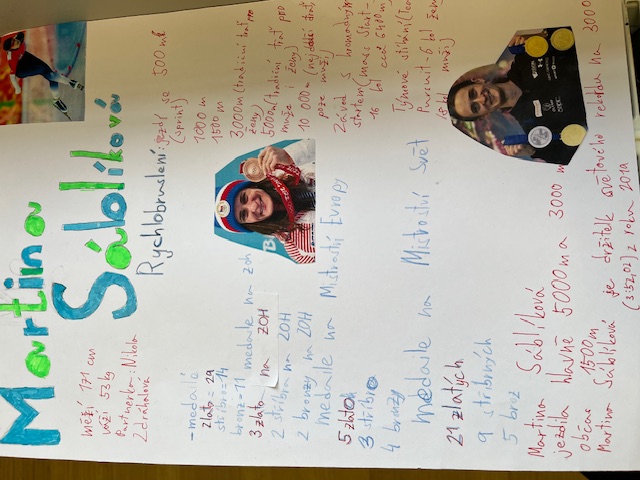 Martina
Sáblíková
Rychlobruslení: jezdí se 500m
(sprint)
1000 m
1500 m
3000m (tradiční trať pro
ženy)
5000m (tradiční trať pro
muže i ženy)
10 000 m (nejdelší trať,
pouze muži)
Závod s hromadným
startem (mass start)-
16 kol cca 6400m
Týmové stíhání (Team
Pursuit)-6 kol ženy
8 kol muži
měří 171 cm
váží 53 kg
Partnerka: Nikola
Zdráhalová
-medailé
zlato = 29
stříbro = 14
bronz = 11
medaile na zoh
3 zlata na ZOH
2 stříbra na ZOH
2 bronzy na ZOH
medaile na Mistrovství Evropy
5 zlato
3 stříbro
4 bronzy
medaile na Mistrovství Svět
21 zlatých
9 stříbrných
5 bronz
Martina Sáblíková
jezdila hlavně 5000m a 3000 m
občas 1500m
Martina Sáblíková je držitelk světového rekordu na 3000
(3:52,02) z roku 2019